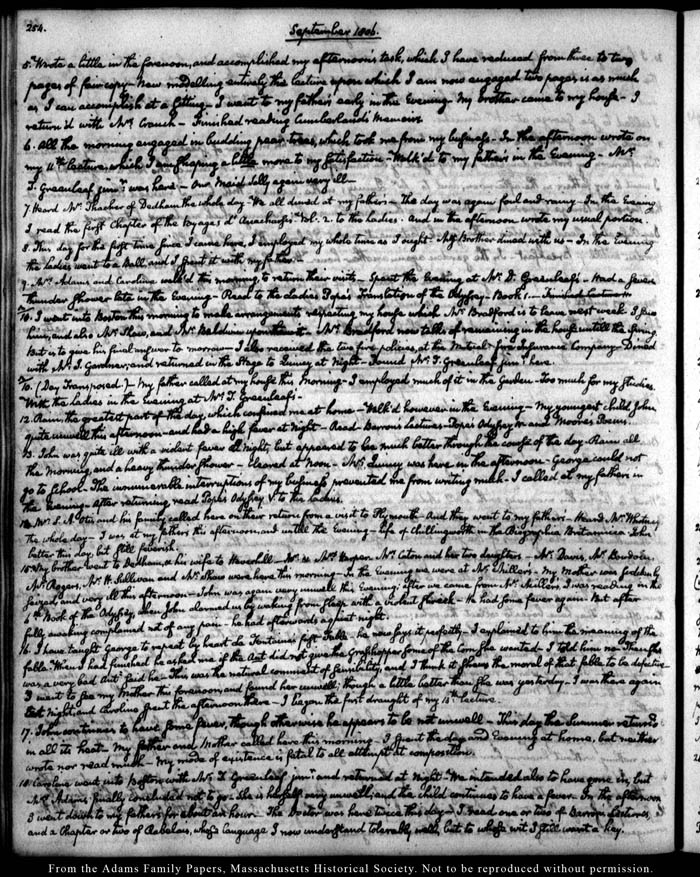 254.
September 1806.
5. Wrote a little in the forenoon, and accomplished my afternoon's task, which I have reduced from three to two
pages of fair copy. New modelling entirely the lecture upon which I am now engaged two pages is as much
as I can accomplish at a sitting. I went to my father's early in the Evening. My brother came to my house. I
return'd with Mrs. Cranch. Finished reading Cumberland's Memoirs.
6. All the morning engaged in budding pear trees, which took me from my business. In the afternoon wrote on
my 11th. lecture, which I am shaping a little more to my satisfaction. Walk'd to my father's in the Evening. Mr.
T. Greenleaf junr. was here. Our Maid Sally again very ill.
7. Heard Mr. Thacher of Dedham the whole day. We all dined at my father's. The day was again foul and rainy. In the Evening
I read the first Chapter of the Voyages d'Anacharsis Vol. 2. to the ladies. And in the afternoon wrote my usual portion.
8. This day for the first time since I came here, I employed my whole time as I ought. My Brother dined with us. In the Evening
the ladies went to a Ball, and I spent it with my father.
9. Mrs. Adams and Caroline walk'd this morning, to return their visits. Spent the Evening at Mr. D. Greenleaf's. Had a severe
thunder shower late in the Evening. Read to the Ladies Pope's Translation of the Odyssey. Book 1.
10. I went into Boston this morning to make arrangements respecting my house which Mr. Bradford is to leave next week. I saw
him, and also Mr. Shaw, and Mr. Baldwin upon it. Mr. Bradford now talks of remaining in the house untill the Spring,
But is to give his final answer tomorrow. I also received the two fire policies, at the Mutual fire Insurance Company. Dined
with Mr. T. Gardner, and returned in the Stage to Quincy at Night. Found Mr. T. Greenleaf junr. here.
(Day Transposed.) My father called at my house this Morning. I employed much of it in the Garden. Too much for my Studies.
With the ladies in the evening at Mr. T. Greenleaf's.
12. Rain the greatest part of the day, which confined me at home. Walk'd however in the Evening. My youngest child John,
quite unwell this afternoon and had a high fever at Night. Read Barron's Lectures, Pope's Odyssey and Moore's Poems.
13. John was quite ill with a violent fever all Night, but appeared to be much better through the course of the day. Rain all
the Morning, and a heavy thunder shower. Cleared at Noon. Mrs. Quincy was here in the afternoon. George could not
go to School. The innumerable interruptions of my business prevented me from writing much. I called at my father's in
the Evening. After returning, read Pope's Odyssey to the ladies.
14. Mr. S. A. Otis and his family called here on their return from a visit to Plymouth. And they went to my father's. Heard Mr. Whitney
the whole day. I was at my father's this afternoon, and untill the Evening. Life of Chillingworth in the Biographia Britannica. John
better this day, but still feverish.
15. My brother went to Dedham, & his wife to Haverhill. Mr. & Mrs. Harper, Mrs. Caton and her two daughters. Mr. Davis, Mr. Bowdoin,
Mr. Rogers, Mr. W. Sullivan and Mr. Shaw were here this morning. In the Evening we were at Mr. Miller's. My Mother was suddenly
seized, and very ill this afternoon. John was again very unwell this Evening; after we came from Mr. Miller's, I was reading in the
6th. Book of the Odyssey, when John alarmed us by waking from sleep with a violent shriek. He had some fever again. But after
fully awaking complained not of any pain. he had afterwards a quiet night.
16. I have taught George to repeat by heart La Fontaine's first Fable. he now says it perfectly. I explained to him the meaning of the
fable. When I had finished he asked me if the Ant did not give the Grasshopper some of the Corn she wanted. I told him no. Then she
was a very bad Ant said he. This was the natural comment of sensibility, and I think it shews the moral of that fable to be defective.
I went to see my Mother this forenoon and found her unwell, though a little better than she was yesterday. I was there again
last night, and Caroline spent the afternoon there. I began the first draught of my 12th. Lecture.
17. John continues to have some fever, though otherwise he appears to be not unwell. This day the Summer returns
in all its heat. My father and Mother called here this morning. I spent the day and Evening at home, but neither
wrote nor read much. My mode of existence is fatal to all attempt at composition.
18. Caroline went into Boston with Mr. T. Greenleaf junr. and returned at Night. We intended also to have gone in, but
Mrs. Adams finally concluded not to go. She is herself very unwell, and the child continues to have a fever. In the afternoon
I went down to my father's for about an hour. The Doctor was here twice this day. I read one or two of Barron's Lectures,
and a Chapter or two of Rabelais, whose language I now understand tolerably well, but to whose wit I still want a key.
From the Adams Family Papers, Massachusetts Historical Society. Not to be reproduced without permission.